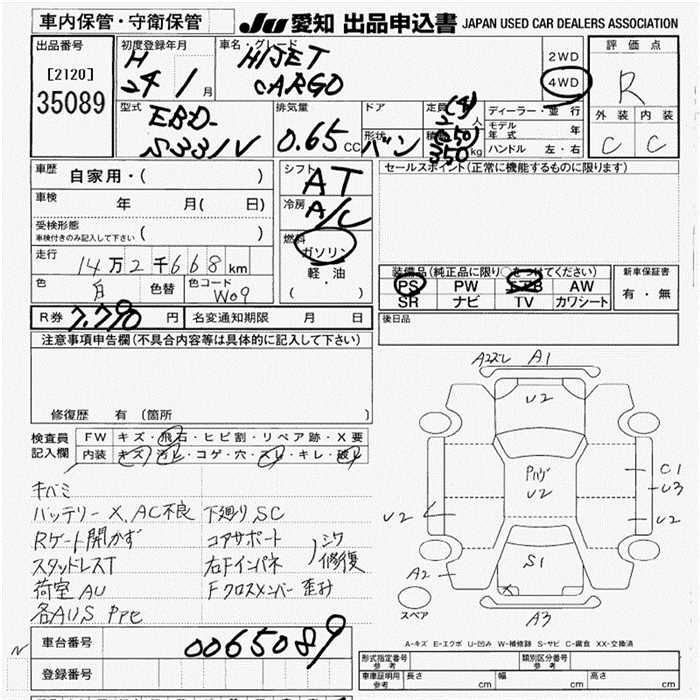 車内保管・守衛保管
JU 愛知 出品申込書 JAPAN USED CAR DEALERS ASSOCIATION
出品番号
[2120]
35089
初度登録年月
H
24 1 月
車名・グレード
HIJET
CARGO
2WD
4WD
評価点
R
外装 内装
C C
型式
EBD-
S331V
排気量
0.65 CC
ドア
形状
バン
定員
(4)
2 人
積載
(250)
350 kg
ディーラー・並行
モデル年式 年
ハンドル 左・右
車歴
自家用・( )
車検
年 月( 日)
受検形態
車検付きのみ記入して下さい ( )
走行
14万2千668km
色
白
色替
色コード
W09
シフト
AT
冷房
A/C
燃料
ガソリン
軽油
( ・ )
セールスポイント(正常に機能するものに限ります)
装備品(純正品に限り○をつけてください)
PS PW AW
SR ナビ TV カワシート
新車保証書
有・無
R券 7,790 円
名変通知期限 月 日
後日品
注意事項申告欄(不具合内容等は具体的に記入して下さい)
修復歴 有(箇所 )
検査員
記入欄
FW キズ・飛石・ヒビ割・リペア跡・X要
内装 キズ・汚レ・コゲ・穴・スレ・キレ・破レ
キバミ
バッテリーX, AC不良
Rゲート開かず
スタッドレスT
荷室AU
下廻りSC
コアサポート
右Fインパネ
シワ
修復
Fクロスメンバー歪み
A2ズレ A1
U2
Pハゲ
U2
C1
U3
U2
U2
S1
X
A2
A3
スペア
A-キズ E-エクボ U-凹み W-補修跡 S-サビ C-腐食 XX-交換済
N
車台番号
0065089
登録番号
形式指定番号
参考
類別区分番号
参考
車庫証明用
参考
長さ cm 幅 cm 高さ cm